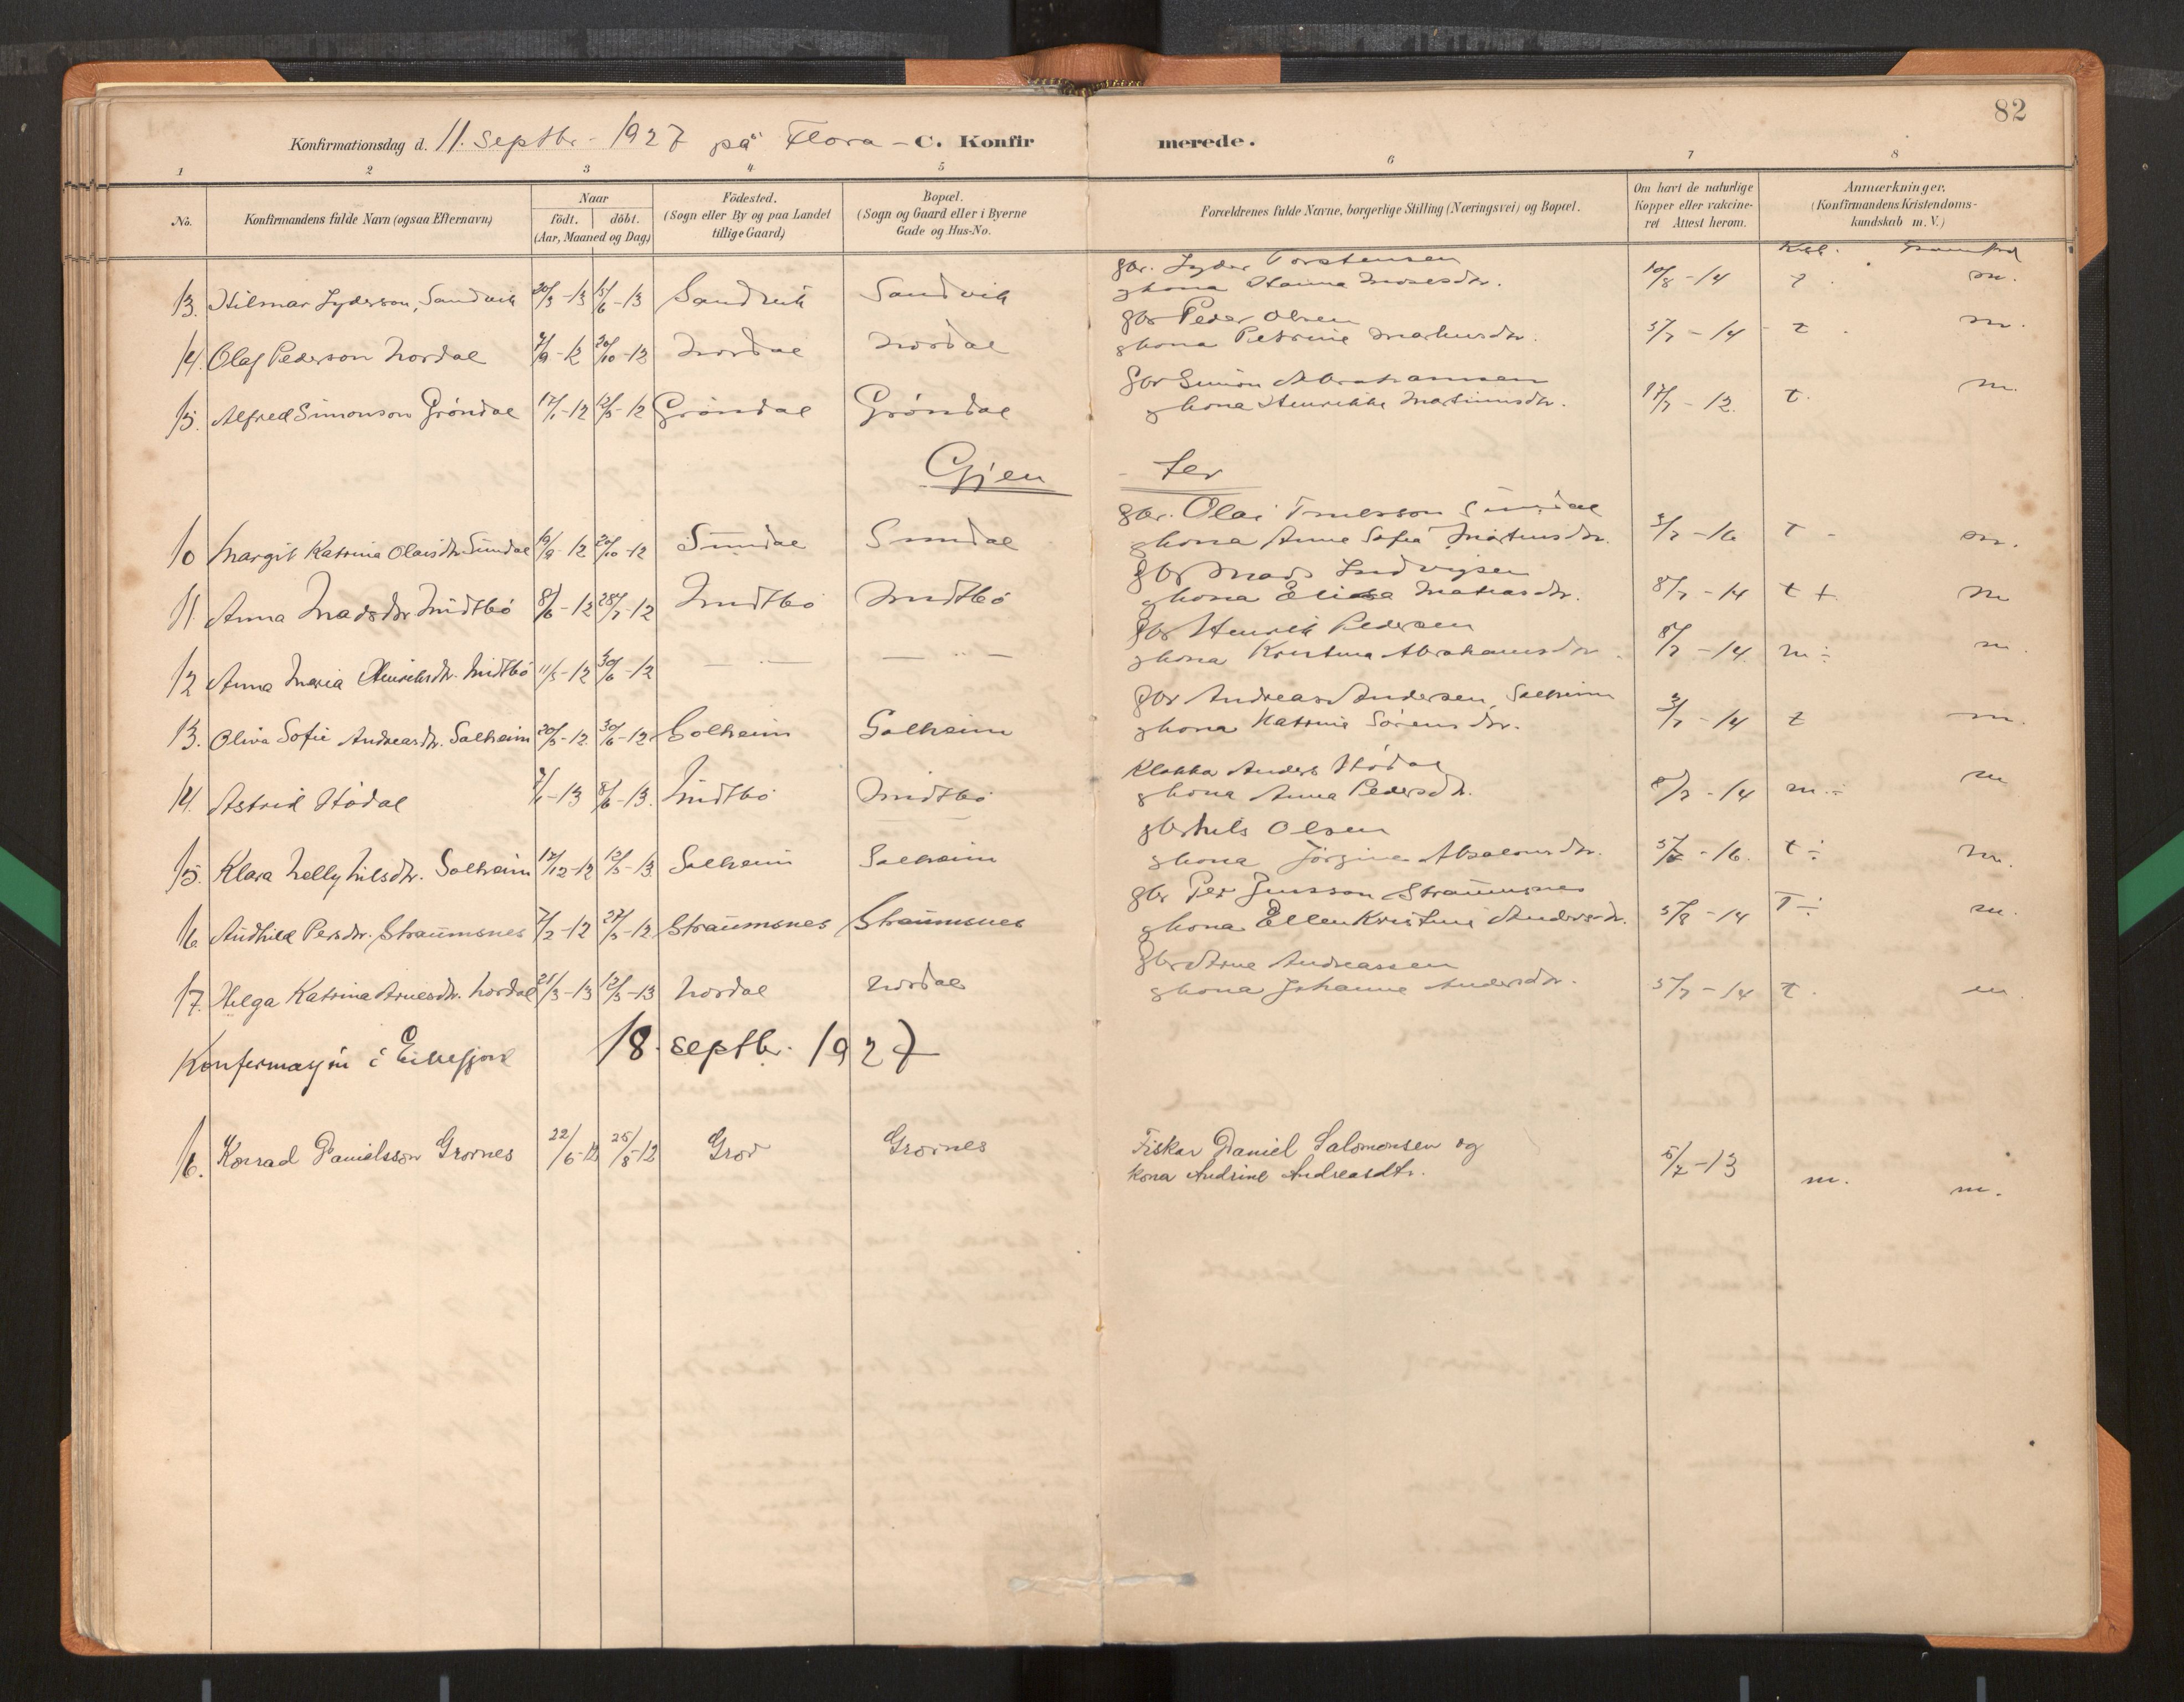 82
Konfirmationsdag d. 11. Septbr. 1927 på Flora - C. Konfirmerede.
1 2 3 4 5 6 7 8
No. Konfirmandens fulde Navn (ogsaa Efternavn) Naar födt. döbt. (Aar, Maaned og Dag) Födested. (Sogn eller By og paa Landet tillige Gaard) Bopæl. (Sogn og Gaard eller i Byerne Gade og Hus-No. Forældrenes fulde Navne, borgerlige Stilling (Næringsvei) og Bopæl. Om havt de naturlige Kopper eller vakcineret Attest herom. Anmærkninger. (Konfirmandens Kristendomskundskab m. V.)
13. Hilmar Lyderson, Sandvik 20/3 -13 15/6 -13 Sandvik Sandvik gbr. Lyder Torstensen
g kona Hanna Mosesdtr. 10/8 -14 t. m.
14. Olaf Pederson Nordal 7/9 -12 20/10 -12 Nordal Nordal gbr Peder Olsen
g kona Petrine Markusdtr. 5/7 -14 t. m.
15. Alfred Simonson Gröndal 17/1 -12 12/5 -12 Gröndal Gröndal gbr Simon Abrahamsen
g kona Henrikke Martinusdtr. 17/7 -12. t. m.
Gjen - ter
10 Margit Katrina Olaisdtr. Sundal 19/9 -12 20/10 -12 Sundal Sundal gbr. Olai Trulsson Sundal
g kona Anne Sofia Mortinsdtr. 3/7 -16 T - m.
11. Anna Madsdtr Midtbö 8/6 -12 28/7 -12 Midtbö Midtbö gbr Mads Ludvigsen
g kona Matiasdtr. 8/7 -14 t + m
12 Anna Maria Henriksdtr. Midtbö 11/5 -12 30/6 -12 — " — — " — gbr Henrik Pedersen
g kona Kristina Abrahamsdtr. 8/7 -14 m ÷ m.
13. Oliva Sofie Andreasdtr. Solheim 20/5 -12. 30/6 -12 Solheim Solheim gbr Andreas Andersen, Solheim
g kona Katrine Sörensdtr. 3/7 -14 t m.
14. Astrid Hödal 7/1 -13 8/6 -13. Midtbö Midtbö Klokka Anders Hödal
g kona Anna Pedersdtr. 8/7 -14 m ÷ m
15. Klara Nelly Nilsdtr. Solheim 17/12 -12 12/5 -13 Solheim Solheim gbr Nils Olsen
g kona Jörgine Absalonsdtr. -16. t ÷ m.
16. Audhild Persdtr. Straumsnes 7/2 -12 27/5 -12 Straumsnes Straumsnes gbr Per Jensson Straumsnes
g kona Ellen Kristine Andersdtr. 5/8 -14 T ÷ m.
17. Helga Katrina Arnesdtr. Nordal 21/3 -13 12/5 -13 Nordal Nordal gbr Arne Andreassen
g kona Johanne Andersdtr. 5/7 -14 t. m.
Konfermasjon i Eikefjord 18. septbr. 1927
16. Konrad Danielsson Grovnes 22/6 -12 25/8 -12 Grov Grovnes Fiskar Daniel Salomonsen og
kona Andrine Andreasdtr. 5/7 -13 m. m.